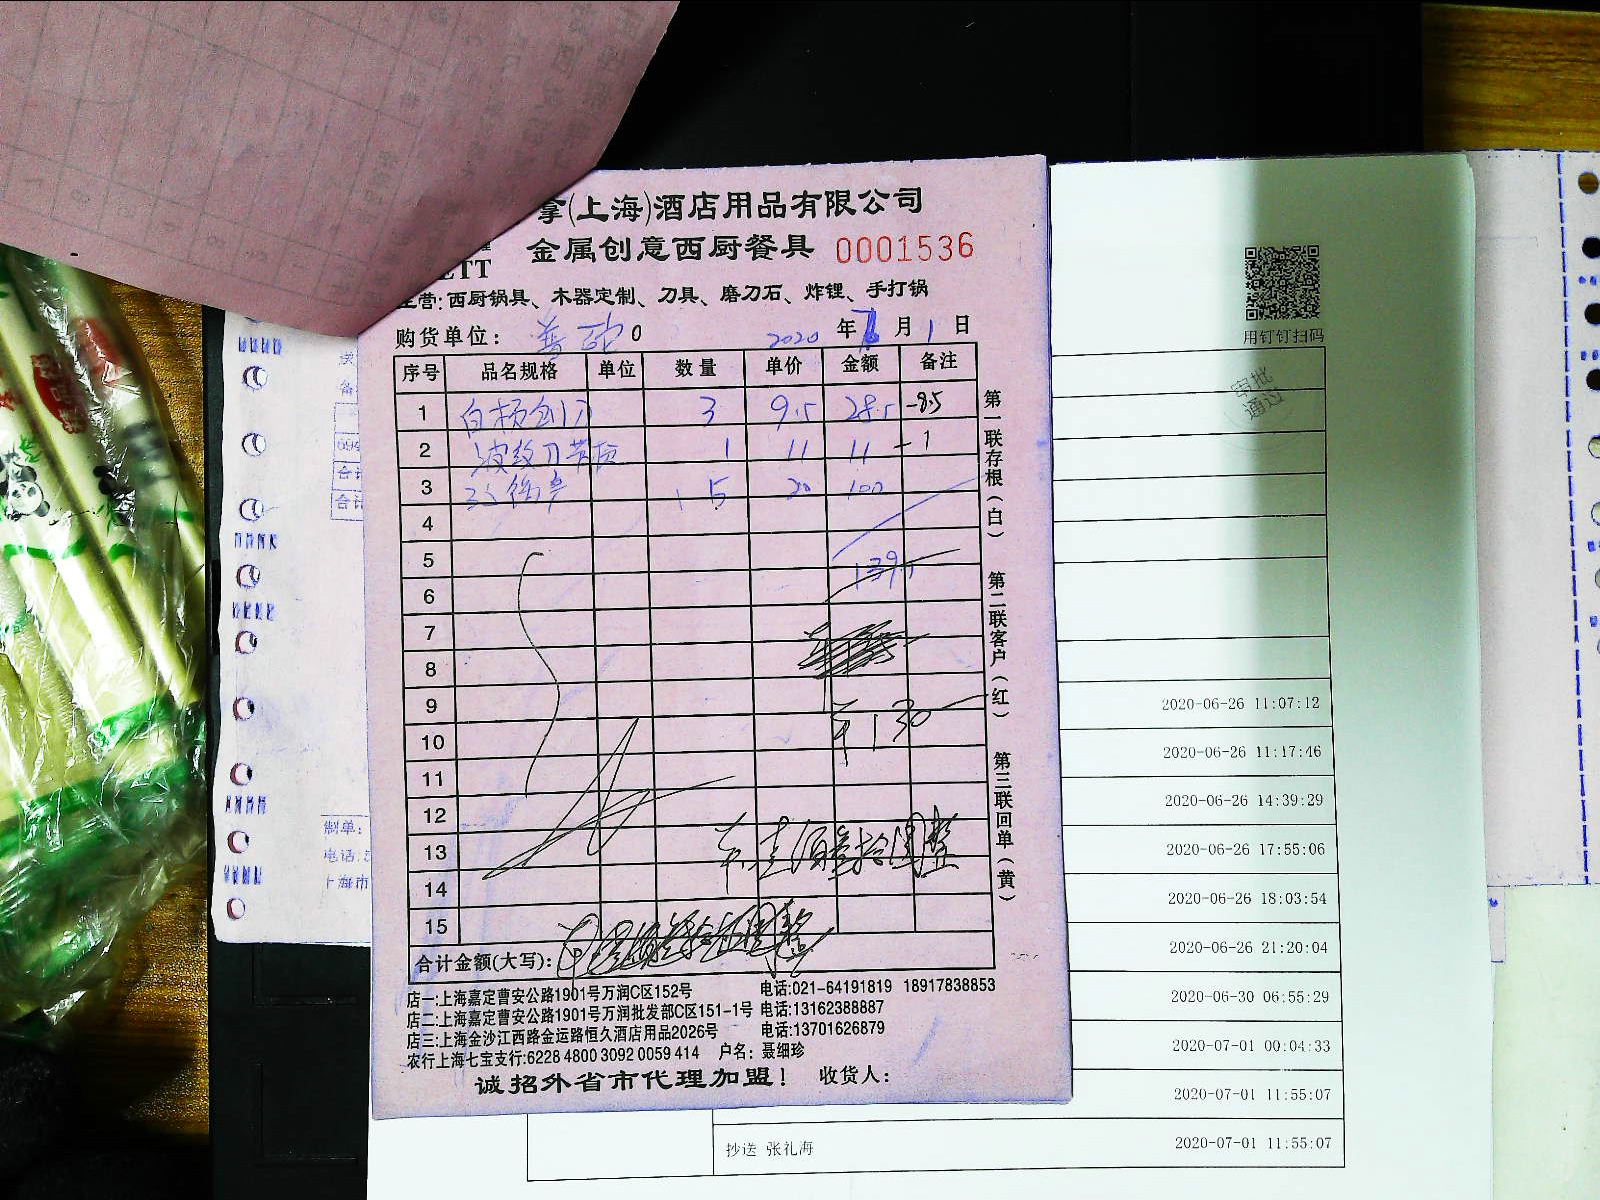 拿(上海)酒店用品有限公司
金属创意西厨餐具 0001536
ETT
主营:西厨锅具、木器定制、刀具、磨刀石、炸锂、手打锅
购货单位: 2020 年 7 月 1 日
序号 品名规格 单位 数量 单价 金额 备注
1 3 9.5 28.5 -8.5
2 波纹刀 1 11 11 -1
3 5 20 100
4
5
139.5
6
7
8
9
130
10
11
12
13 壹佰叁拾圆整
14
15
合计金额(大写):
店一:上海嘉定曹安公路1901号万润C区152号 电话:021-64191819 18917838853
店二:上海嘉定曹安公路1901号万润批发部C区151-1号 电话:13162388887
店三:上海金沙江西路金运路恒久酒店用品2026号 电话:13701626879
农行上海七宝支行:6228 4800 3092 0059 414 户名:聂细珍
诚招外省市代理加盟! 收货人:
第一联存根(白)
第二联客户(红)
第三联回单(黄)
用钉钉扫码
审批
通过
2020-06-26 11:07:12
2020-06-26 11:17:46
2020-06-26 14:39:29
2020-06-26 17:55:06
2020-06-26 18:03:54
2020-06-26 21:20:04
2020-06-30 06:55:29
2020-07-01 00:04:33
2020-07-01 11:55:07
抄送 张礼海 2020-07-01 11:55:07
合计
合计
制单:
电话:
上海市